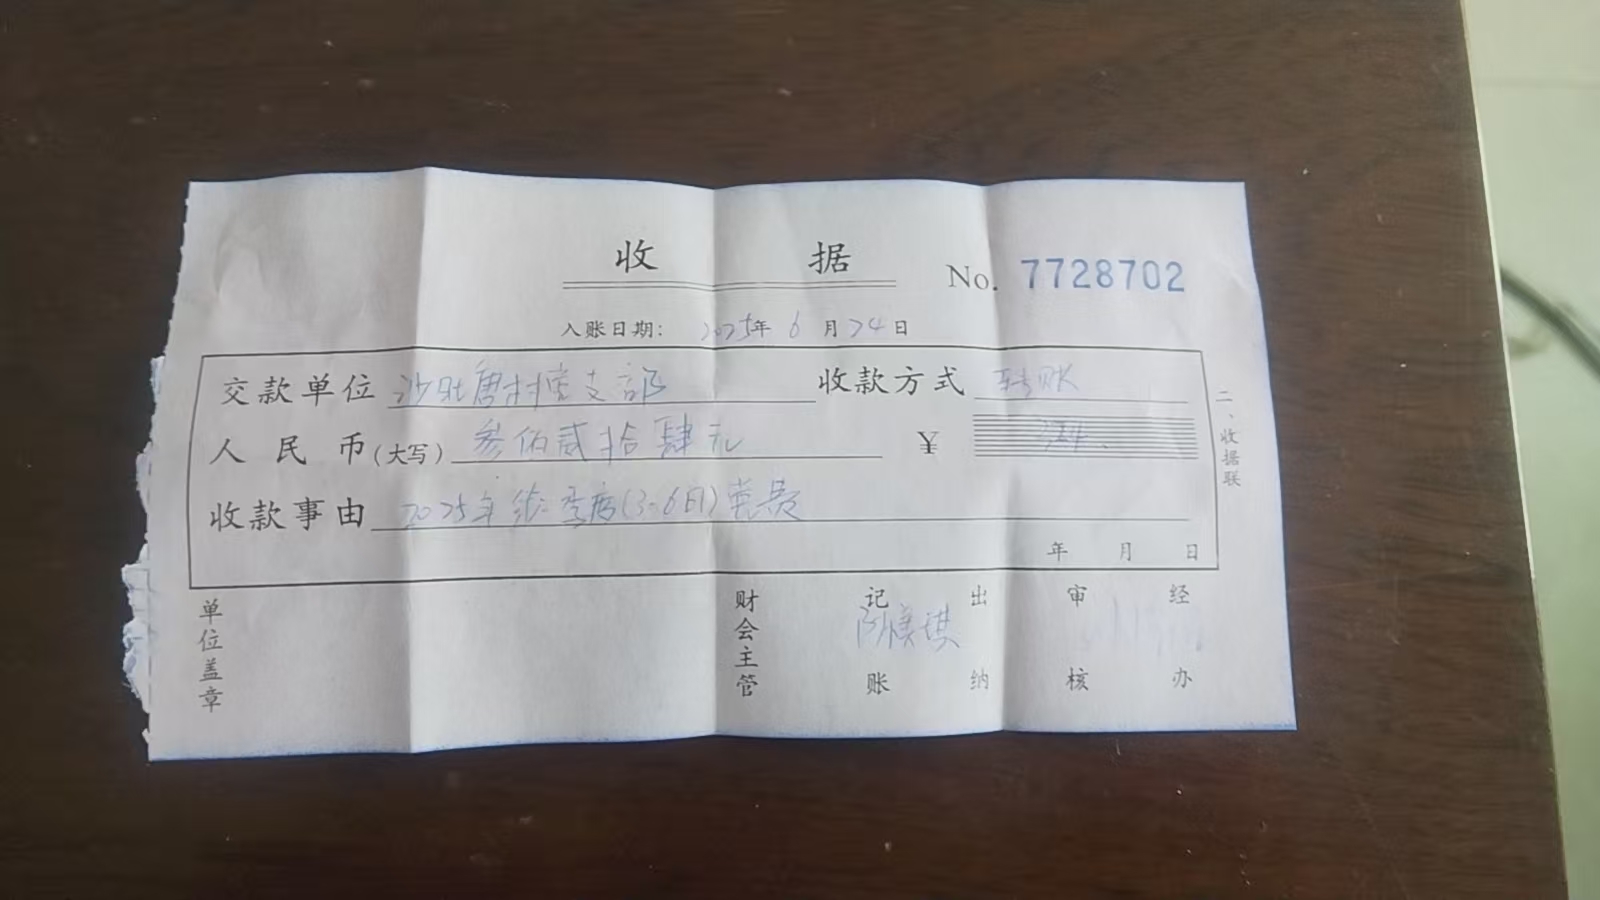 收据 No. 7728702
入账日期: 2025年 6月24日
交款单位 沙北唐村党支部 收款方式 转账
人民币(大写) 叁佰贰拾肆元 ¥ 324.
收款事由 2025年第二季度(3-6月)党费
年 月 日
二、收据联
单位盖章
财会主管
记账
出纳
审核
经办